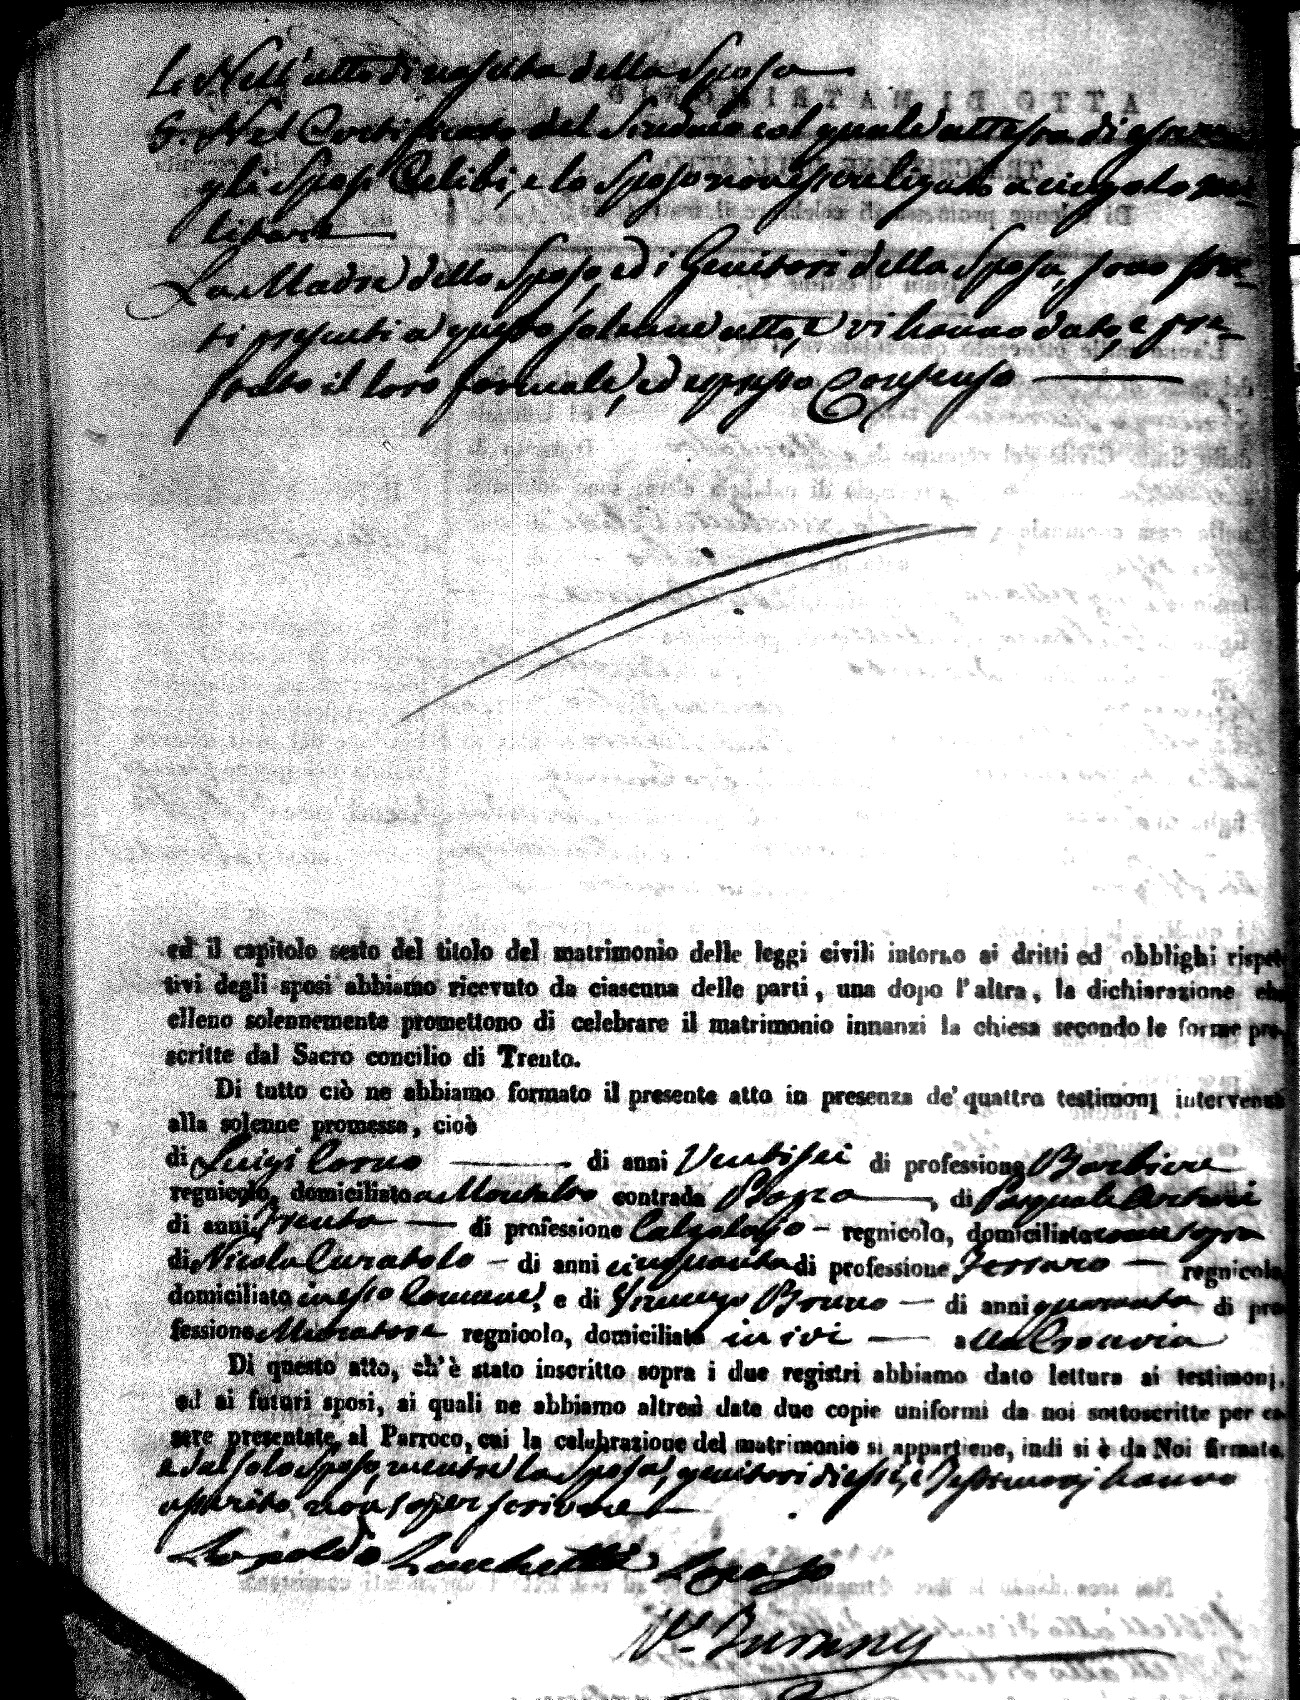 4. Nell'atto di nascita della Sposa
5. Nel Certificato del Sindaco col quale attesta di essere
gli Sposi Celibi, e lo Sposo non esser ligato a cingolo mi-
litare
La Madre dello Sposo, ed i Genitori della Sposa, sono
ti presenti a questo solenne atto, e vi hanno dato, e pre-
stato il loro formale, ed espresso Consenso
ed il capitolo sesto del titolo del matrimonio delle leggi civili intorno ai dritti ed obblighi rispet-
tivi degli sposi abbiamo ricevuto da ciascuna delle parti, una dopo l'altra, la dichiarazione che
elleno solennemente promettono di celebrare il matrimonio innanzi la chiesa secondo le forme pre-
scritte dal Sacro concilio di Trento.
Di tutto ciò ne abbiamo formato il presente atto in presenza de' quattro testimonj intervenuti
alla solenne promessa, cioè
di Luigi Corno di anni Ventisei di professione Barbiere
regnicolo, domiciliato a Montalto contrada , di Pasquale
di anni Trenta di professione Calzolajo regnicolo, domiciliato come sopra
di Nicola Curatolo di anni cinquanta di professione Ferraro regnicolo
domiciliato in esso Comune, e di Bruno di anni quaranta di pro-
fessione Muratore regnicolo, domiciliato in ivi alla
Di questo atto, ch'è stato inscritto sopra i due registri abbiamo dato lettura ai testimonj,
ed ai futuri sposi, ai quali ne abbiamo altresì date due copie uniformi da noi sottoscritte per es-
sere presentate al Parroco, cui la celebrazione del matrimonio si appartiene, indi si è da Noi firmato
e dal solo Sposo, mentre la Sposa, genitori di essi, e Testimonj hanno
asserito non saper scrivere
Leopoldo Sposo